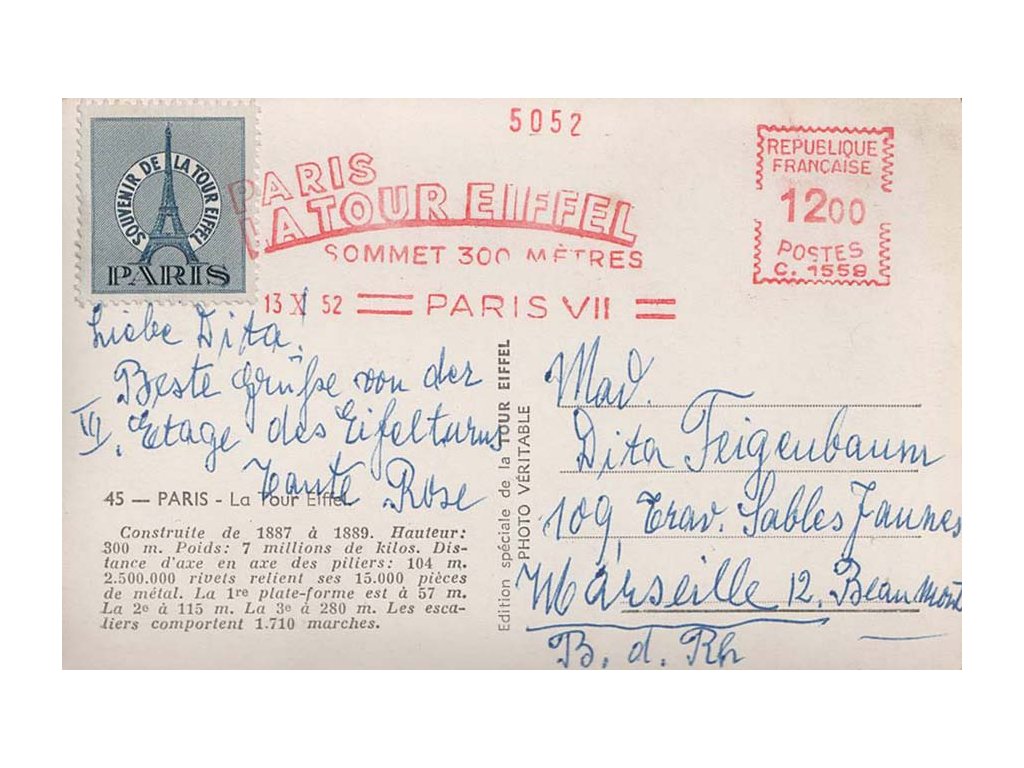 5052
SOUVENIR DE LA TOUR EIFFEL
PARIS
PARIS
LA TOUR EIFFEL
SOMMET 300 MÈTRES
13 X 52 PARIS VII
REPUBLIQUE
FRANÇAISE
1200
POSTES
C. 1559
Liebe Dita!
Beste Grüße von der
III. Etage des Eifelturms
Tante Rose
45 — PARIS - La Tour Eiffel
Construite de 1887 à 1889. Hauteur:
300 m. Poids: 7 millions de kilos. Dis-
tance d'axe en axe des piliers: 104 m.
2.500.000 rivets relient ses 15.000 pièces
de métal. La 1re plate-forme est à 57 m.
La 2e à 115 m. La 3e à 280 m. Les esca-
liers comportent 1.710 marches.
Edition spéciale de la TOUR EIFFEL
PHOTO VÉRITABLE
Mad.
Dita Feigenbaum
109, Trav. Sables Jaunes
Marseille 12. Beaumont
B. d. Rh